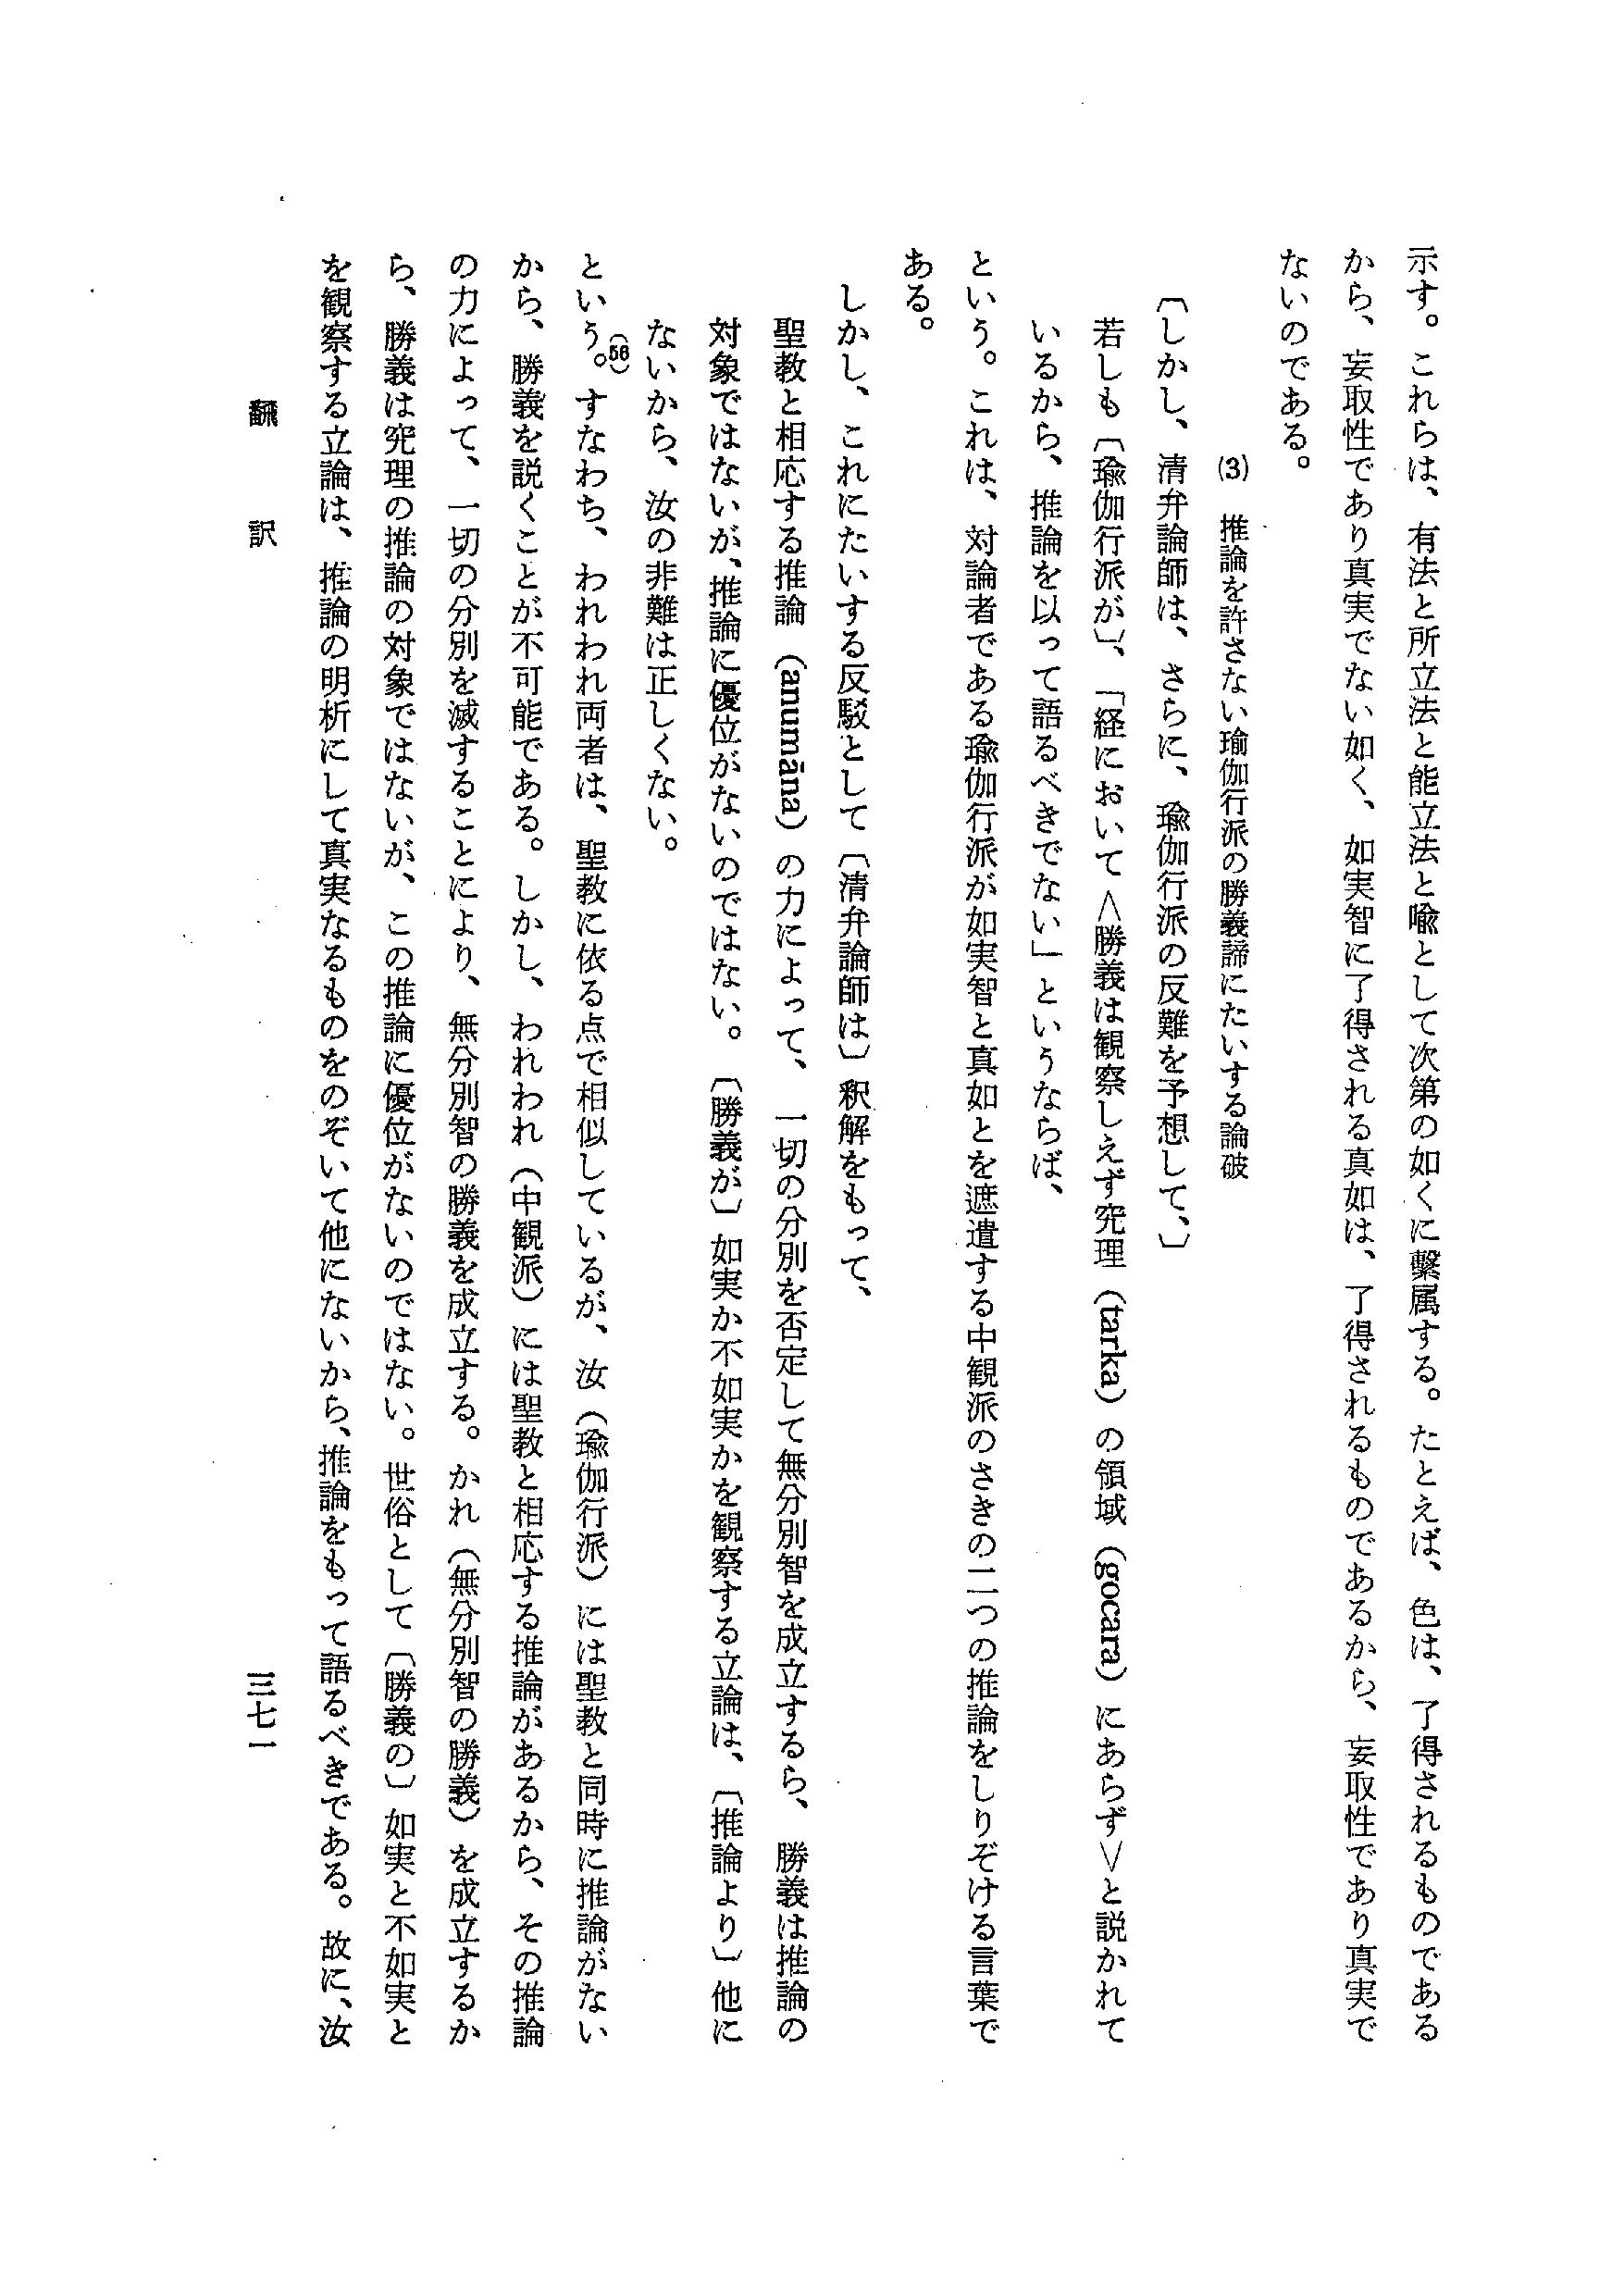 示す。これらは、有法と所立法と能立法と喩として次第の如くに繫属する。たとえば、色は、了得されるものである
から、妄取性であり真実でない如く、如実智に了得される真如は、了得されるものであるから、妄取性であり真実で
ないのである。
(3) 推論を許さない瑜伽行派の勝義諦にたいする論破
〔しかし、清弁論師は、さらに、瑜伽行派の反難を予想して、〕
若しも〔瑜伽行派が〕、「経において〈勝義は観察しえず究理(tarka)の領域(gocara)にあらず〉と説かれて
いるから、推論を以って語るべきでない」というならば、
という。これは、対論者である瑜伽行派が如実智と真如とを遮遣する中観派のさきの二つの推論をしりぞける言葉で
ある。
しかし、これにたいする反駁として〔清弁論師は〕釈解をもって、
聖教と相応する推論(anumāna)の力によって、一切の分別を否定して無分別智を成立するら、勝義は推論の
対象ではないが、推論に優位がないのではない。〔勝義が〕如実か不如実かを観察する立論は、〔推論より〕他に
ないから、汝の非難は正しくない。
という。(56)すなわち、われわれ両者は、聖教に依る点で相似しているが、汝(瑜伽行派)には聖教と同時に推論がない
から、勝義を説くことが不可能である。しかし、われわれ(中観派)には聖教と相応する推論があるから、その推論
の力によって、一切の分別を滅することにより、無分別智の勝義を成立する。かれ(無分別智の勝義)を成立するか
ら、勝義は究理の推論の対象ではないが、この推論に優位がないのではない。世俗として〔勝義の〕如実と不如実と
を観察する立論は、推論の明析にして真実なるものをのぞいて他にないから、推論をもって語るべきである。故に、汝
翻訳
三七一